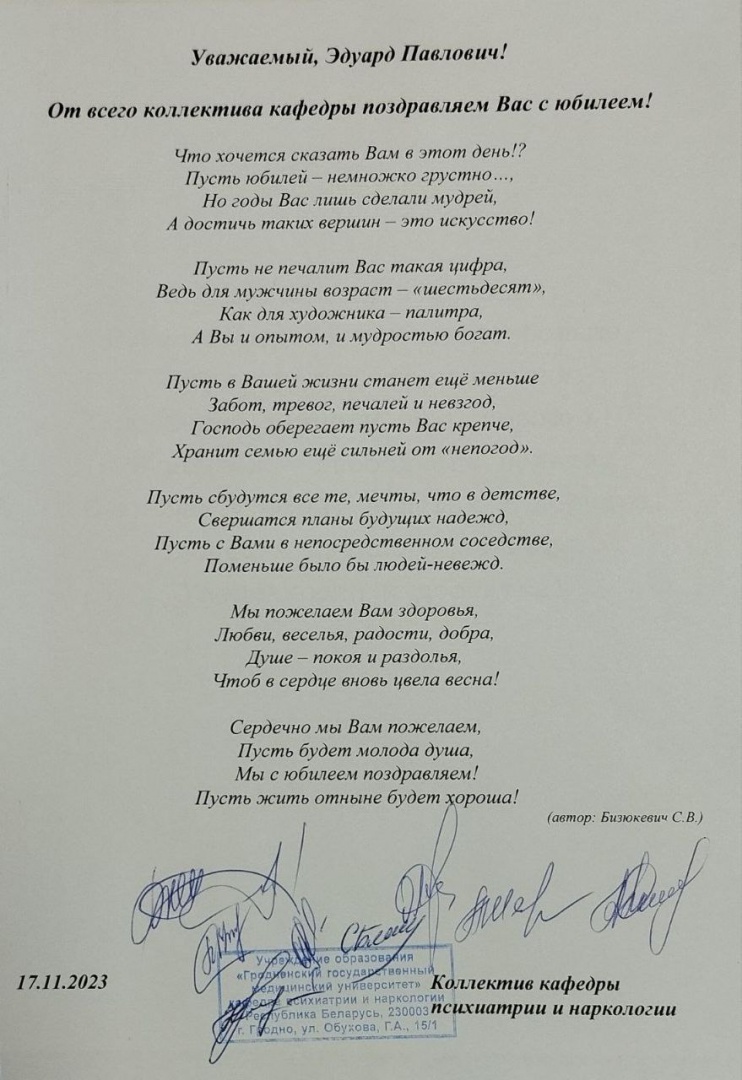 Уважаемый, Эдуард Павлович!
От всего коллектива кафедры поздравляем Вас с юбилеем!
Что хочется сказать Вам в этот день!?
Пусть юбилей – немножко грустно…,
Но годы Вас лишь сделали мудрей,
А достичь таких вершин – это искусство!
Пусть не печалит Вас такая цифра,
Ведь для мужчины возраст – «шестьдесят»,
Как для художника – палитра,
А Вы и опытом, и мудростью богат.
Пусть в Вашей жизни станет ещё меньше
Забот, тревог, печалей и невзгод,
Господь оберегает пусть Вас крепче,
Хранит семью ещё сильней от «непогод».
Пусть сбудутся все те, мечты, что в детстве,
Свершатся планы будущих надежд,
Пусть с Вами в непосредственном соседстве,
Поменьше было бы людей-невежд.
Мы пожелаем Вам здоровья,
Любви, веселья, радости, добра,
Душе – покоя и раздолья,
Чтоб в сердце вновь цвела весна!
Сердечно мы Вам пожелаем,
Пусть будет молода душа,
Мы с юбилеем поздравляем!
Пусть жить отныне будет хороша!
(автор: Бизюкевич С.В.)
Учреждение образования
«Гродненский государственный
медицинский университет»
кафедра психиатрии и наркологии
Республика Беларусь, 230003
г. Гродно, ул. Обухова, Г.А., 15/1
17.11.2023
Коллектив кафедры
психиатрии и наркологии